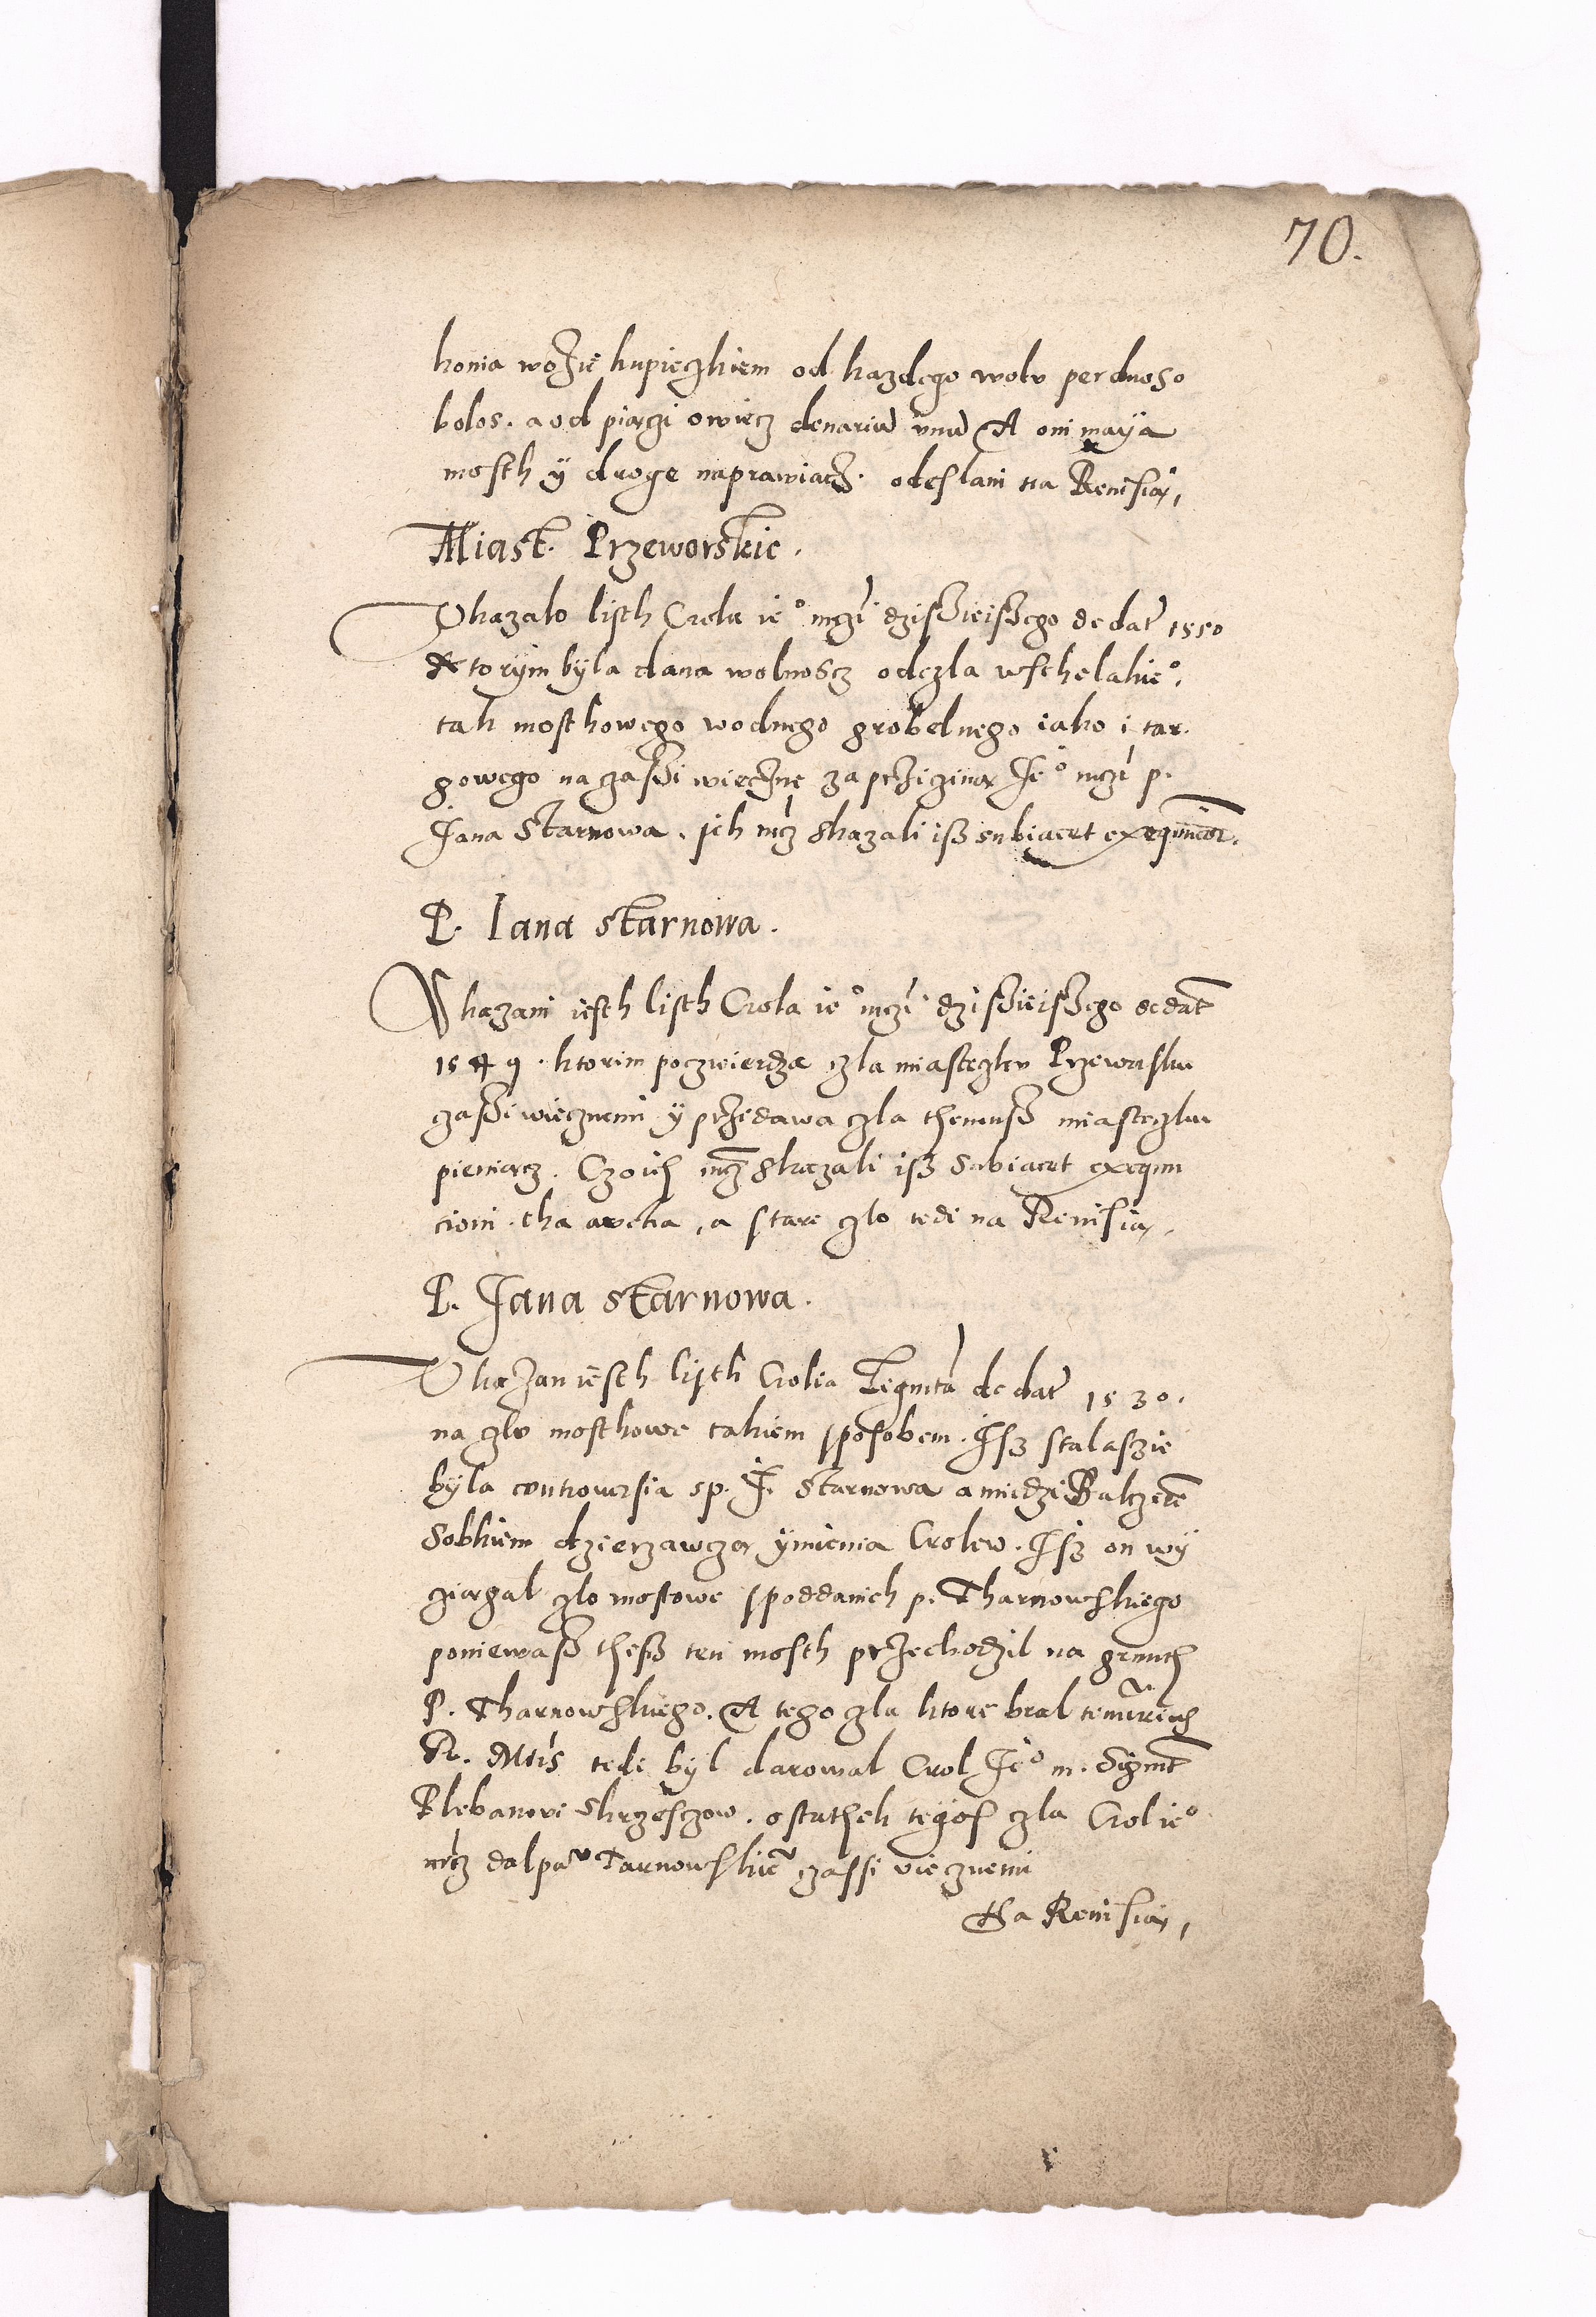 70.
konia wozie kupieczkiem od kazdego wolu per duos o
bolos. a od piaczi owiecz denariu unu A oni mayą
mosth ÿ droge naprawiacz. odeslani na Remisią,
Miast. Przeworskie.
Ukazalo listh Crola ieº mczi dzisieiszego de dat 1550
Ktorÿm bÿla dana wolnoscz odczla wschelakieº.
tak mosthowego wodnego grobelnego iako i tar.
gowego na czassi wieczne za prziczinąx Jeº mczi p.
Jana Starnowa. ich mcz skazali isz subiacet exequucor.
P. Iana starnowa.
Ukazani iesth listh Crola ieº mczi dzisieiszego de dat
1549. ktorim poczwierdza czla miasteczku Przeworsku
czassi wiecznemi ÿ przedawa czla themusz miasteczku
pieniącz. Czo ich mcz skazali isz subiacet exequu
cioni. tha aucta, a stare czlo tedi na Remisią.
P. Jana starnowa.
Ukazan iesth listh Crolia Zigmta de dat 1530.
na czlo mosthowe takiem sposobem. Jsz stala szie
bÿla controversia s p. J. Starnowa a miedzi Balczere
Sobkiem dzierzawczą ÿmienia Crolew. Jsz on wÿ
ciagal czlo mostowe s poddanich p. Tharnowskiego
poniewasz thesz ten mosth przechodzil na gruncth
P. Tharnowskiego. A tego czla ktore bral tenutrich
R. Mtis tedi bÿl darowal Crol Jeº m. Sigmt
Plebanovi Skrzeszow. ostathek tegos czla Crol ieº
mcz dal panu Tarnowskie czassi wiecznemi
tha Remisią,